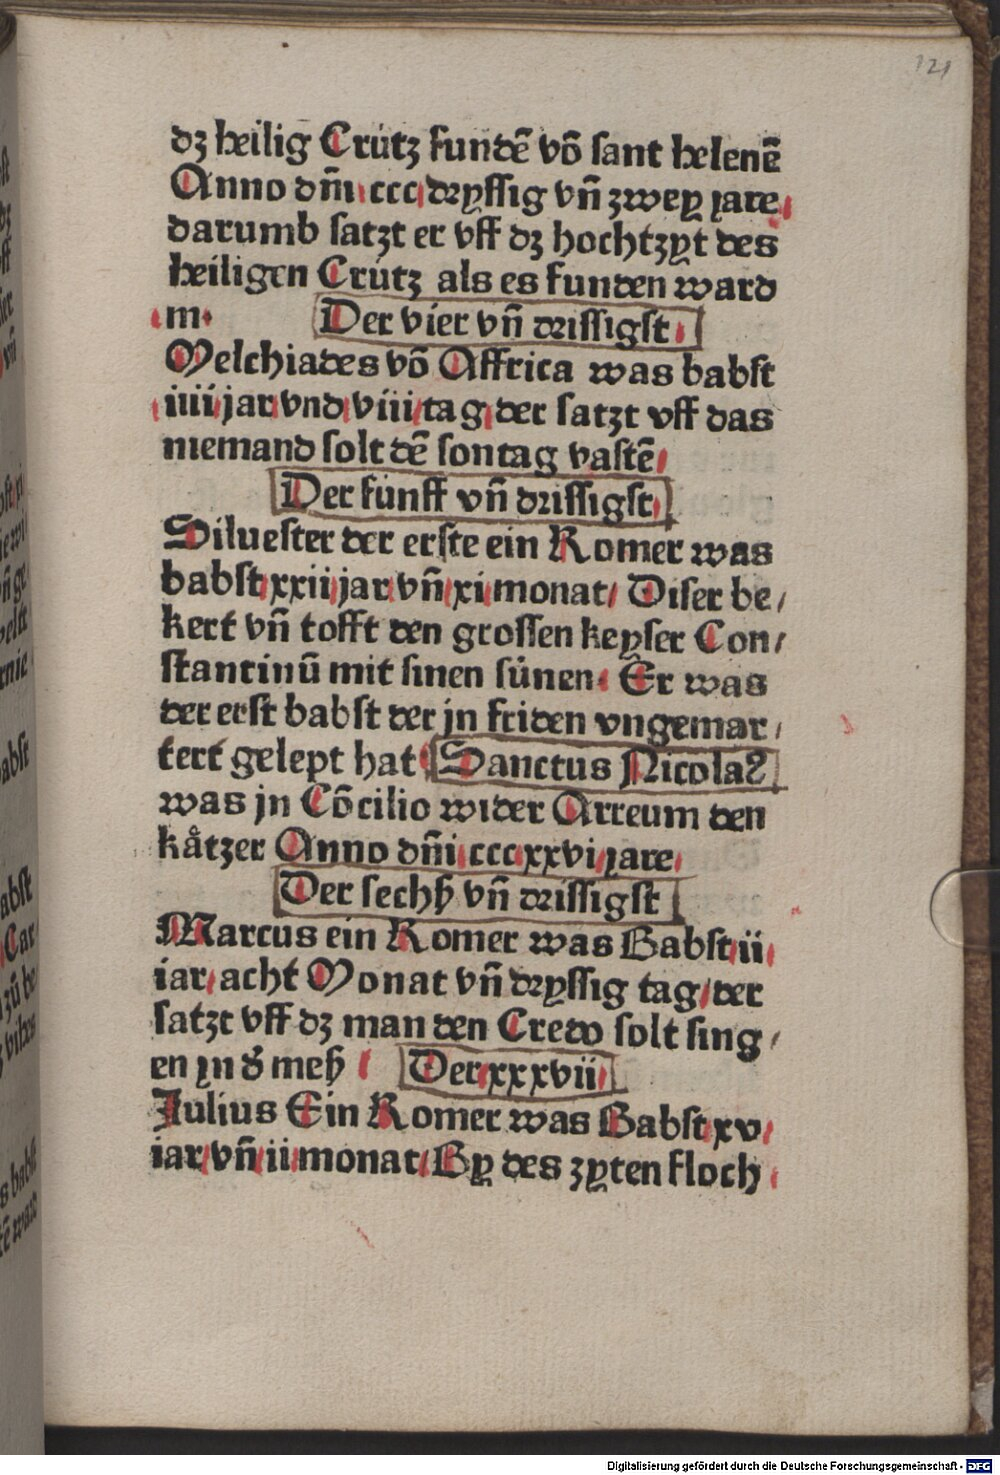 121
dz heilig Crútz fundē vō sant helenē
Anno dn̄i ccc dryssig vn̄ zwey jare
darumb satzt er vff dz hochtzyt des
heiligen Crútz als es funden ward
m. Der vier vn̄ drissigst
Melchiades vō Affrica was babst
iiii jar vnd viii tag der satzt vff das
niemand solt dē sontag vastē
Der fúnff vn̄ drissigst
Siluester der erste ein Romer was
babst xxii jar vn̄ xi monat/ Diser be/
kert vn̄ tofft den grossen keyser Con/
stantinū mit sinen súnen. Er was
der erst babst der jn friden vngemar/
tert gelept hat Sanctus Nicolaꝰ
was jn Cōcilio wider Arreum den
kåtzer Anno dn̄i ccc xxvi jare
Der sechß vn̄ drissigst
Marcus ein Romer was Babst ii
iar acht Monat vn̄ dryssig tag/ der
satzt vff dz man den Credo solt sing/
en jn d̕ meß Der xxxvii
Julius Ein Romer was Babst xv
iar vn̄ ii monat/ By des zyten floch
Digitalisierung gefördert durch die Deutsche Forschungsgemeinschaft - DFG